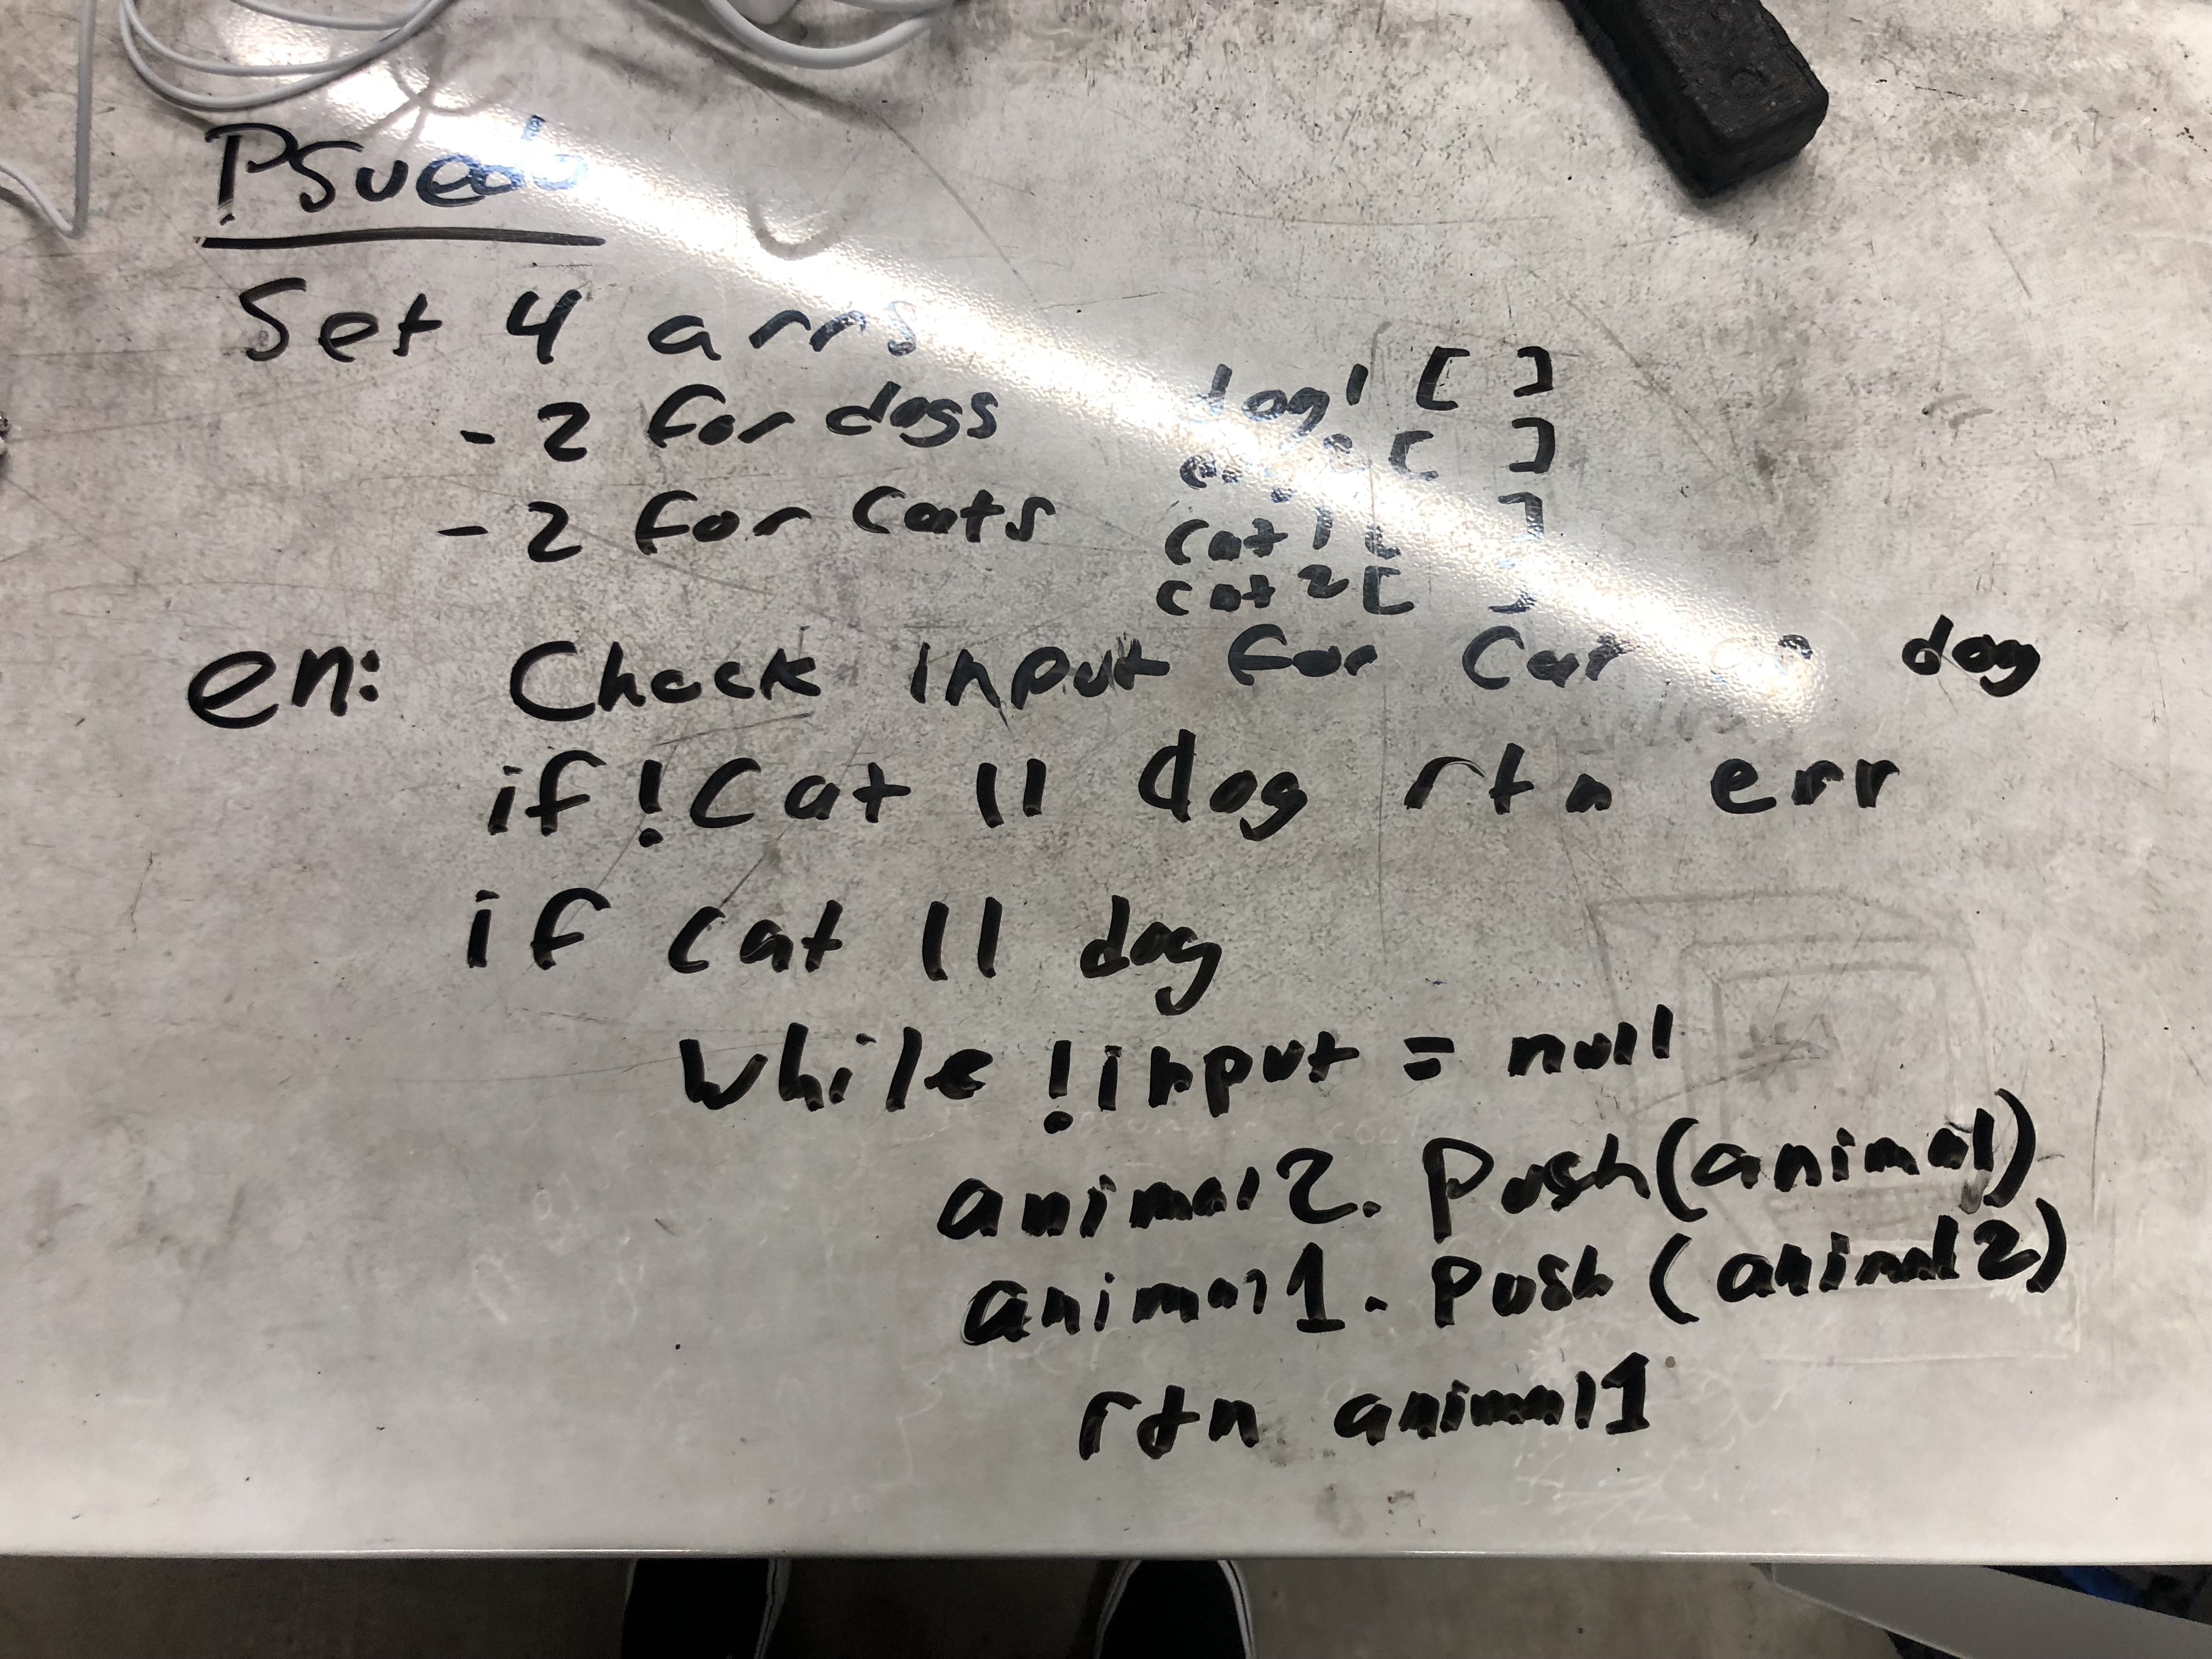 Psuedo
Set 4 arrs
- 2 for dogs
- 2 for cats
dog1 [ ]
[ ]
cat1 [ ]
cat2 [ ]
en: Check input for Cat or dog
if !Cat || dog rtn err
if cat || dog
while !input = null
animal2. Push(animal)
animal1. Push (animal2)
rtn animal1